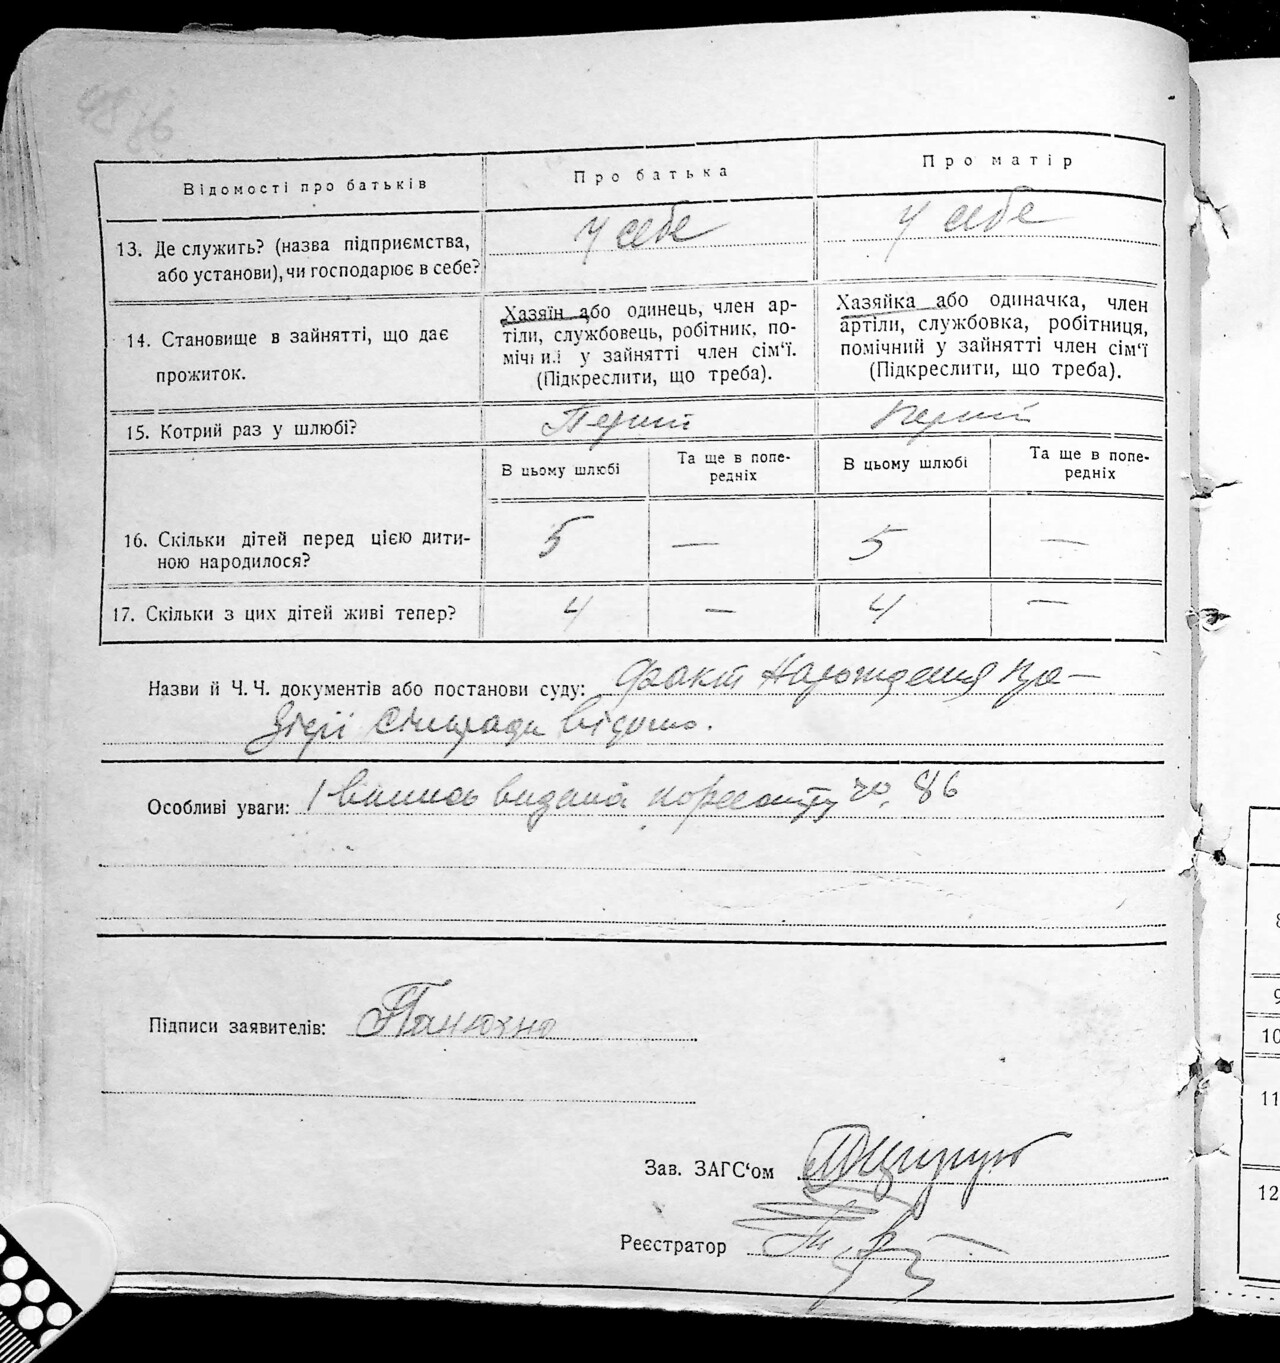 Відомості про батьків
Про батька
Про матір
13. Де служить? (назва підприємства,
або установи), чи господарює в себе?
У себе
У себе
14. Становище в зайнятті, що дає
прожиток.
Хазяїн або одинець, член ар-
тіли, службовець, робітник, по-
мічний у зайнятті член сім'ї.
(Підкреслити, що треба).
Хазяйка або одиначка, член
артіли, службовка, робітниця,
помічний у зайнятті член сім'ї
(Підкреслити, що треба).
15. Котрий раз у шлюбі?
Перший
Перший
В цьому шлюбі
Та ще в попе-
редніх
В цьому шлюбі
Та ще в попе-
редніх
16. Скільки дітей перед цією дити-
ною народилося?
5
—
5
—
17. Скільки з цих дітей живі тепер?
4
—
4
—
Назви й Ч. Ч. документів або постанови суду: Факт Народження
Сільради відомо.
Особливі уваги: 86
Підписи заявителів:
Зав. ЗАГС'ом
Реєстратор
8
9
10
11
12